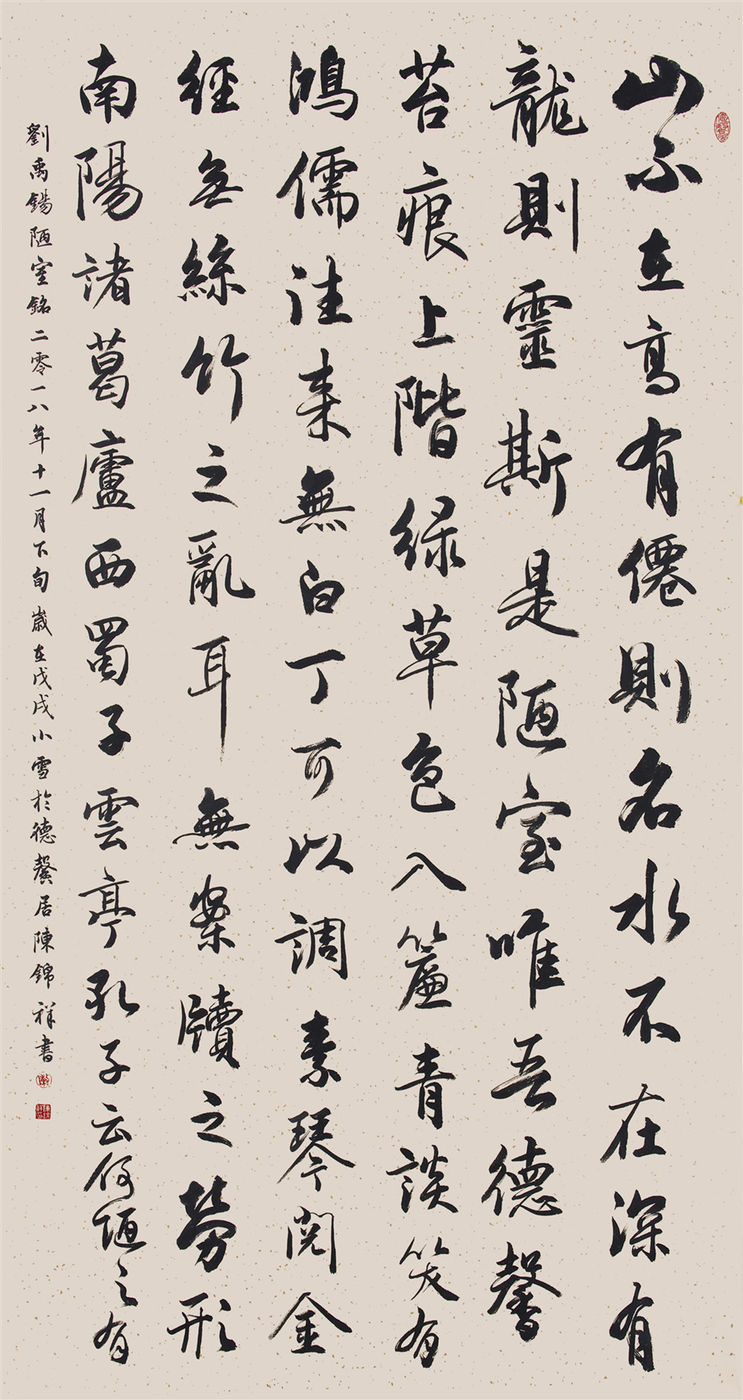 山不在高有僊則名水不在深有
龍則靈斯是陋室唯吾德馨
苔痕上階緑草色入簾青談笑有
鴻儒往来無白丁可以調素琴閱金
經無絲竹之亂耳無案牘之勞形
南陽諸葛廬西蜀子雲亭孔子云何陋之有
劉禹錫陋室銘二零一八年十一月下旬歲在戊戌小雪於德馨居陳錦祥書